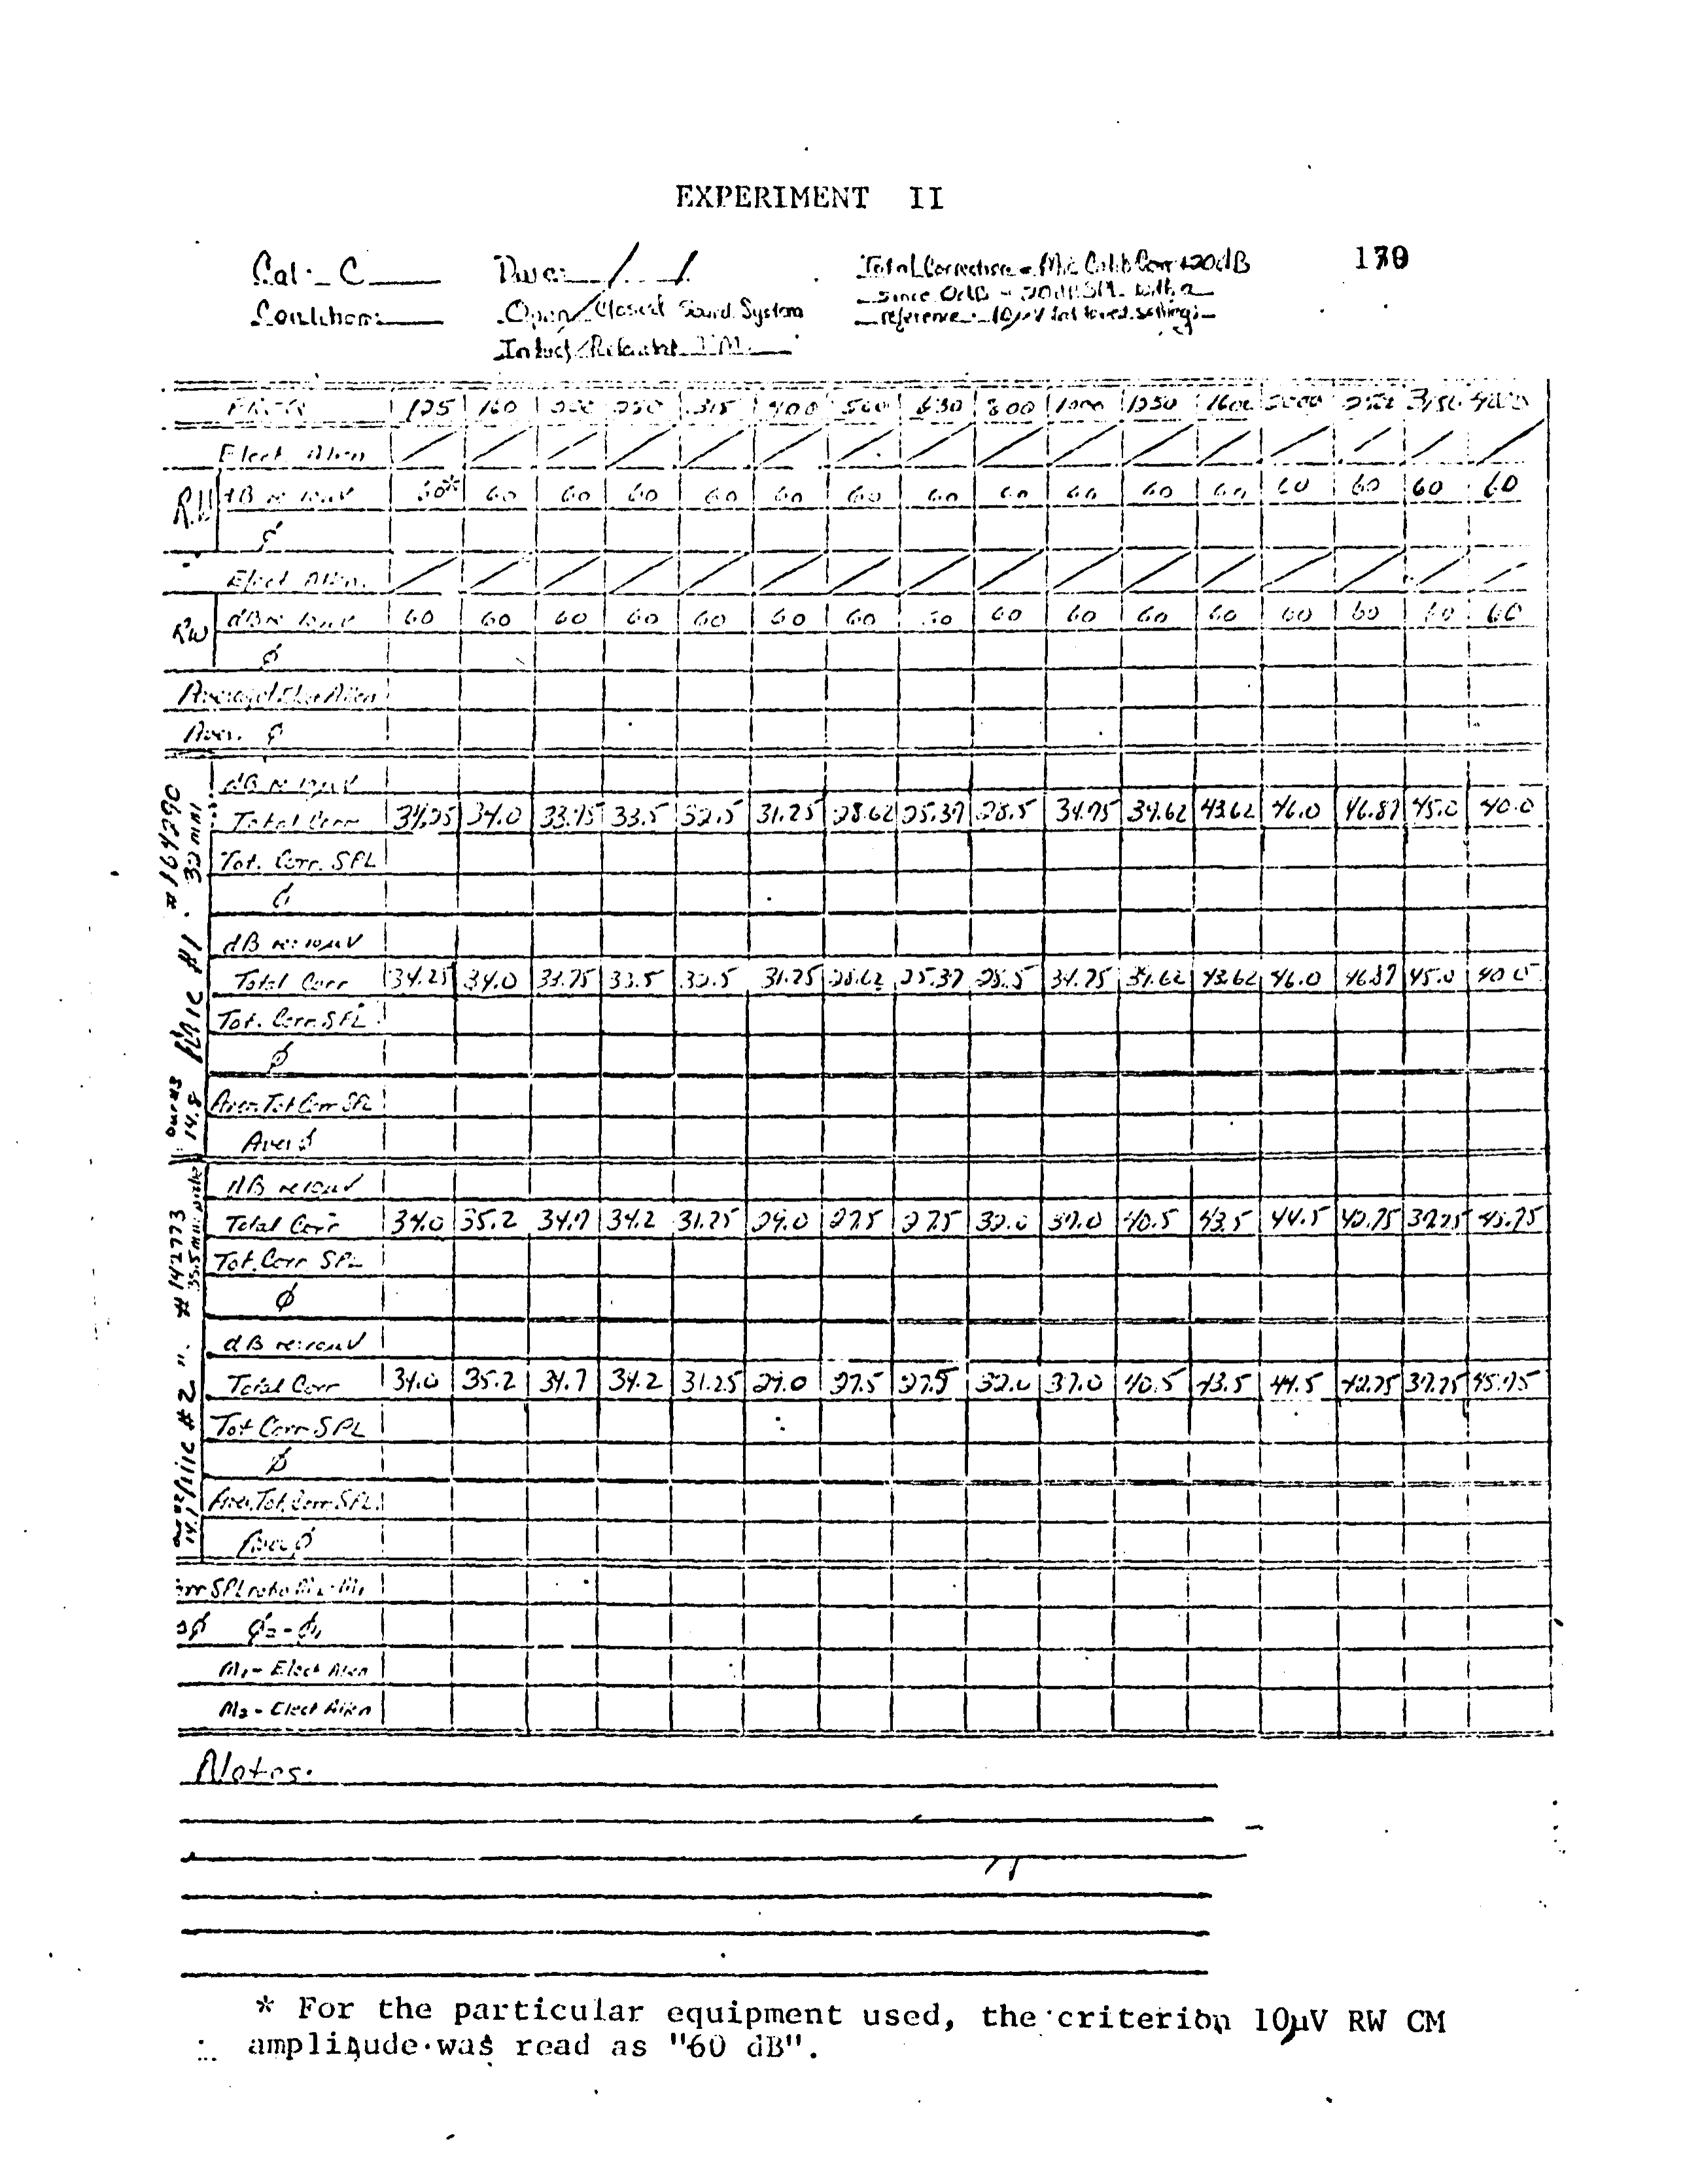 EXPERIMENT II
Cat: C Date: / / Total Correction = Mic Calib Corr +20dB 170
Condition: Open/Closed Sound System since 0dB = 20dB SPL with a
reference 10µV
Intact
FREQ 125 160 200 250 315 400 500 630 800 1000 1250 1600 2000 3150 4000
Elect. Atten
RW dB re 10µV 60* 60 60 60 60 60 60 60 60 60 60 60 60 60 60 60
ø
Elect Atten.
RW dB re 10µV 60 60 60 60 60 60 60 60 60 60 60 60 60 60 60 60
ø
Averaged Elect Atten
Aver. ø
Mic #1 #164290
dB re 10µV
Total Corr 34.25 34.0 33.75 33.5 32.5 31.25 28.62 25.37 28.5 34.75 39.62 43.62 46.0 46.87 45.0 40.0
Tot. Corr. SPL
ø
dB re: 10µV
Total Corr 34.25 34.0 33.75 33.5 32.5 31.25 28.62 25.37 28.5 34.75 39.62 43.62 46.0 46.87 45.0 40.0
Tot. Corr. SPL
ø
Aver. Tot Corr SPL
Aver ø
Mic #2 #142773
dB re 10µV
Total Corr 34.0 35.2 34.7 34.2 31.25 29.0 27.5 27.5 32.0 37.0 40.5 43.5 44.5 42.75 37.75 45.75
Tot. Corr SPL
ø
dB re: 10µV
Total Corr 34.0 35.2 34.7 34.2 31.25 29.0 27.5 27.5 32.0 37.0 40.5 43.5 44.5 42.75 37.75 45.75
Tot Corr SPL
ø
Aver. Tot. Corr SPL
Aver ø
SPL ratio M₂-M₁
ø₂-ø₁
M₁-Elect Atten
M₂-Elect Atten
Notes:
* For the particular equipment used, the criterion 10µV RW CM
amplitude was read as "60 dB".